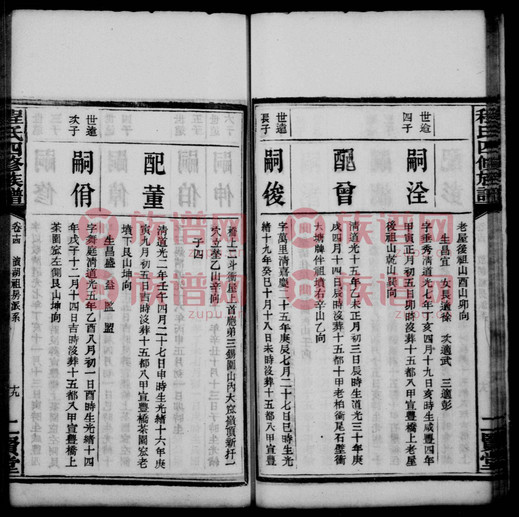 程氏四修族譜
老屋後祖山酉山卯向
生昌宜 女長適徐 次適武 三適彭
世遠
四子
嗣洤
字垂秀清道光七年丁亥四月十九日亥時生咸豐四年
甲寅正月初五日卯時沒葬十五都八甲宣豐橋上老屋
後祖山乾山巽向
配曾
清道光十五年乙未正月初三日辰時生清光緒三十年庚
戌四月十四日辰時沒葬十五都十甲老柏衝尾石壁衝
大塘牌伴祖墳右辛山乙向
世遠
長子
嗣俊
字萬里清嘉慶二十五年庚辰七月二十七日巳時生光
緒十九年癸巳十月十八日未時沒葬十五都八甲宣豐
二賢堂
橋上二斗衝屋上首胞弟三錫園山內大窊嶺頂新扦一
穴立癸乙山辛向
子四
配董
清道光二年壬午四月二十七日申時生光緒十六年庚
寅九月初五日吉時沒葬十五都八甲宣豐橋茶園窊老
墳下艮山坤向
生昌盛 益 監 盟
世遠
次子
嗣佾
字舞庭清道光五年乙酉八月初一日酉時生光緒十四
年戊子十二月十四日吉時沒葬十五都八甲宣豐橋上
茶園窊左側艮山坤向
程氏四修族譜
卷十六
濱湖祖房家系
十九
二賢堂
族谱网
zupu.cn